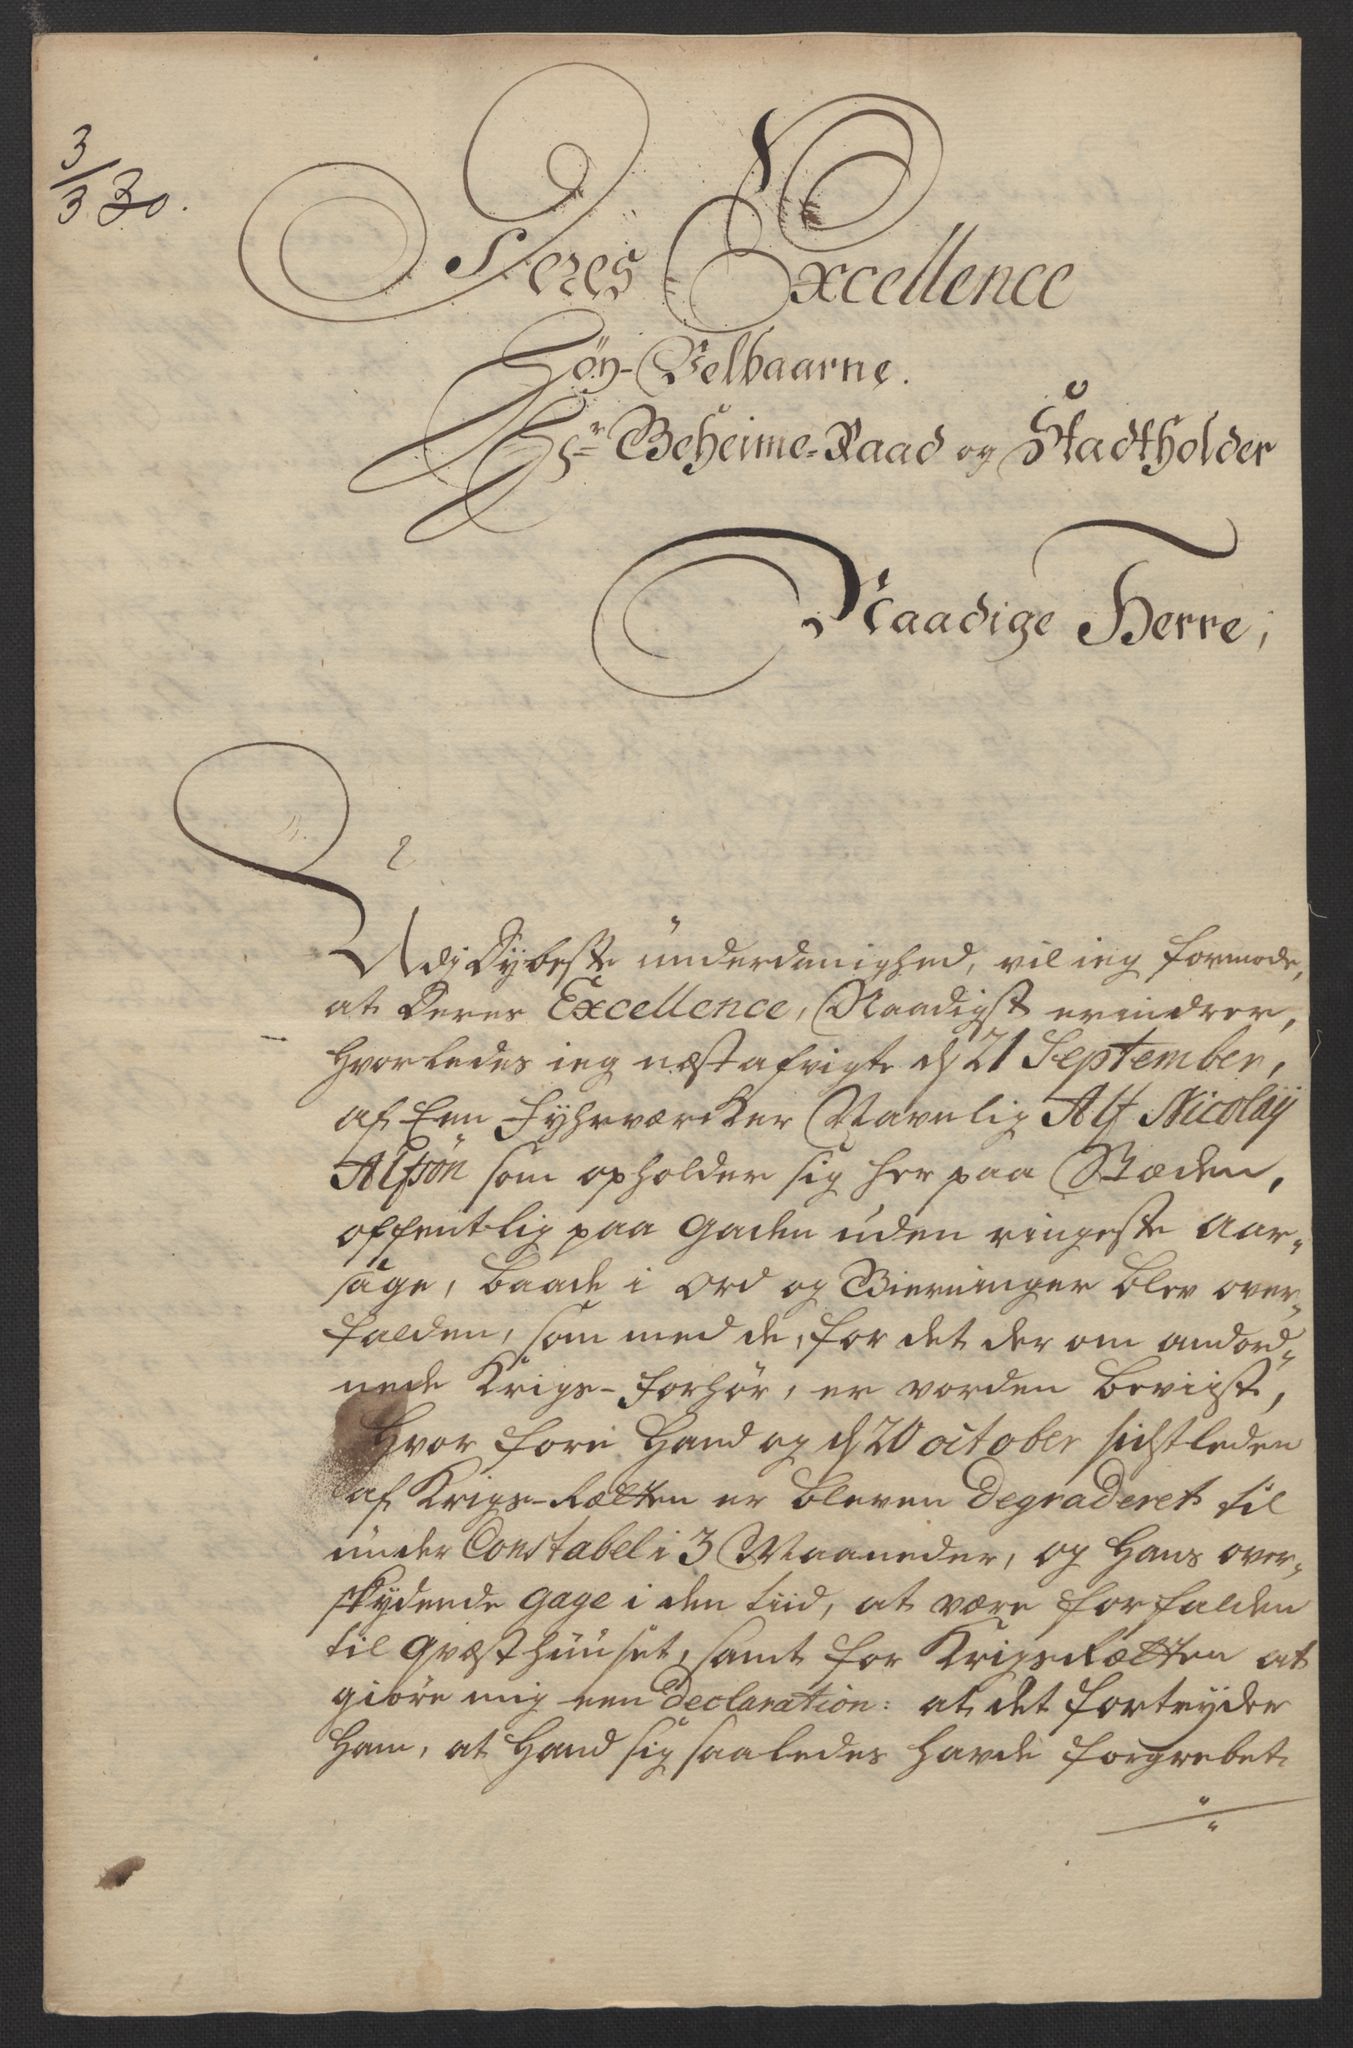 3/3 30.
Deres Excellence
Høy-Velbaarne.
Hr. Geheime-Raad og Stadtholder
Naadige Herre,
Udj Dybeste ünderdanighed, vil ieg formode,
at Deres Excellence, Naadigst erindrer,
hvorledes ieg næstafvigte d 21 September,
af Een Fyhrværcker Navnlig Alf Nicolaÿ
Alfsøn som opholder sig her paa Stæden,
offentlig paa Gaden uden ringeste Aar-
sage, baade i Ord og Gierninger blev over-
falden, som med de, for det der om anord-
nede Krigs-Forhør, er vorden beviist,
Hvor fore Hand og d 20 october sidstleden
af Krigs-Rætten er bleven Degraderet til
under Constabel i 3 Maaneder, og Hans over-
skydende gage i den tiid, at være forfalden
til qvæsthuuset, samt for KrigsRætten at
giøre mig een Declaration: at det fortryder
Ham, at Hand sig saaledes havde forgrebet